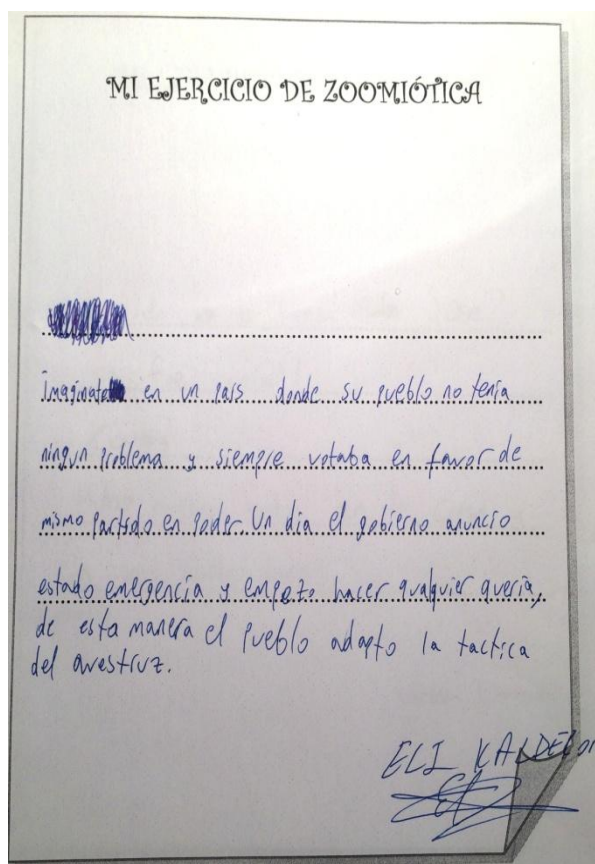 MI EJERCICIO DE ZOOMIÓTICA
Imaginate en un pais donde su pueblo no tenia
ningun problema y siempre votaba en favor de
mismo partido en poder. Un dia el gobierno anuncio
estado emergencia y empezo hacer qualquier queria,
de esta manera el pueblo adapto la tactica
del avestruz.
ELI